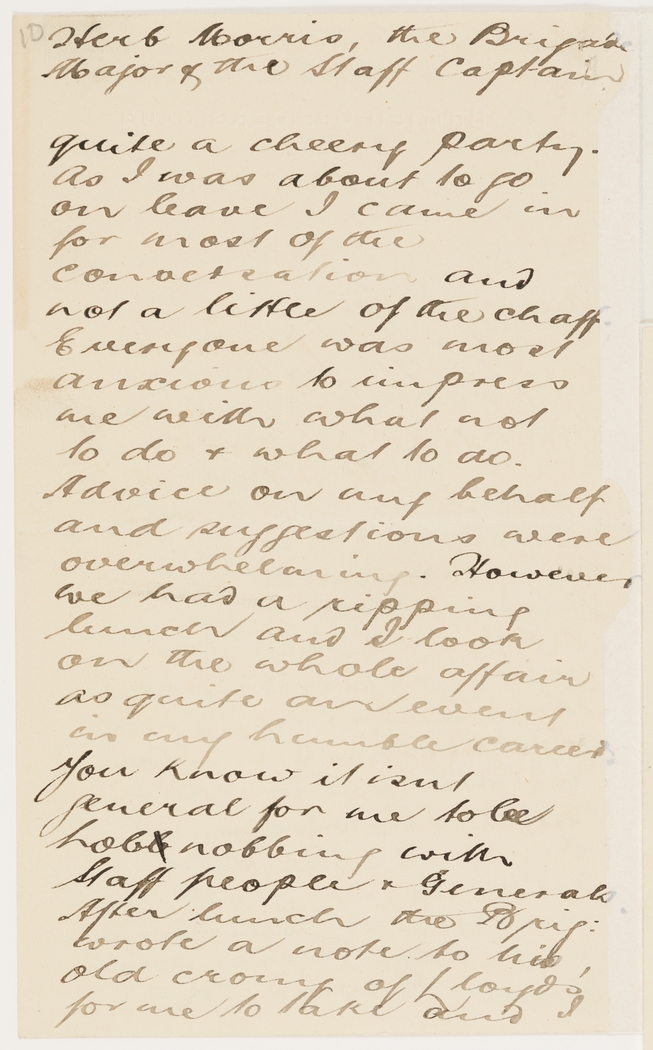 10
Herb Morris, the Brigade
Major & the Staff Captain
quite a cheery party.
As I was about to go
on leave I came in
for most of the
conversation and
not a little of the chaff.
Everyone was most
anxious to impress
me with what not
to do & what to do.
Advice on my behalf
and suggestions were
overwhelming. However
we had a ripping
lunch and I look
on the whole affair
as quite an event
in my humble career.
You know it isnt
general for me to be
hob nobbing with
Staff people & Generals
After lunch the Brig:
wrote a note to his
old crony of Lloyds
for me to take and I